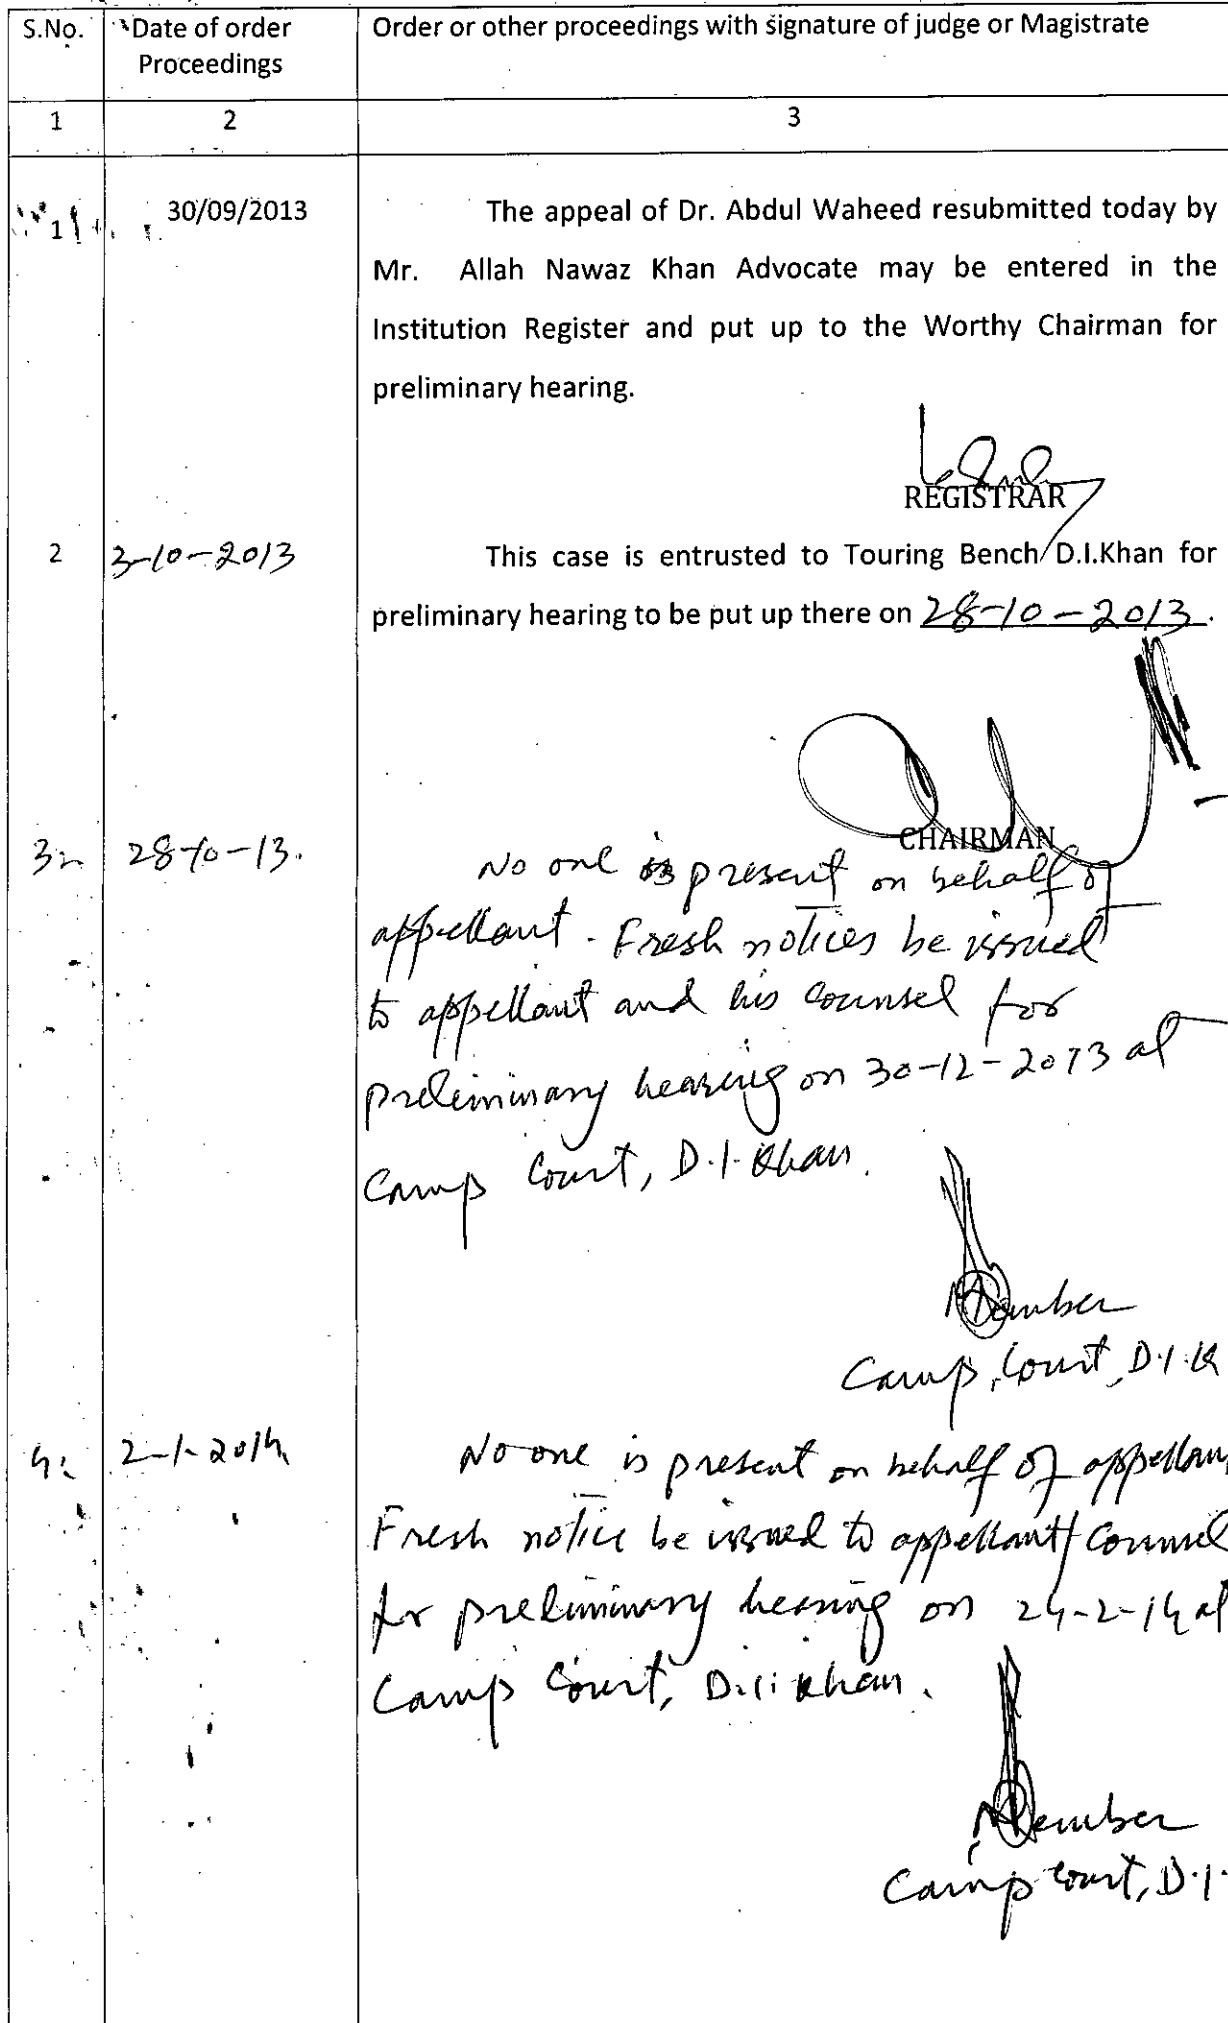 S.No. Date of order Order or other proceedings with signature of judge or Magistrate
Proceedings
1 2 3
1 30/09/2013 The appeal of Dr. Abdul Waheed resubmitted today by
Mr. Allah Nawaz Khan Advocate may be entered in the
Institution Register and put up to the Worthy Chairman for
preliminary hearing.
REGISTRAR
2 3-10-2013 This case is entrusted to Touring Bench D.I.Khan for
preliminary hearing to be put up there on 28-10-2013.
CHAIRMAN
3. 28-10-13. No one is present on behalf of
appellant. Fresh notices be issued
to appellant and his counsel for
preliminary hearing on 30-12-2013 at
Camp Court, D.I.Khan.
Member
Camp Court, D.I.K
4. 2-1-2014 No one is present on behalf of appellan
Fresh notice be issued to appellant/Counsel
for preliminary hearing on 24-2-14 at
Camp Court, D.I.Khan.
Member
Camp Court, D.I.